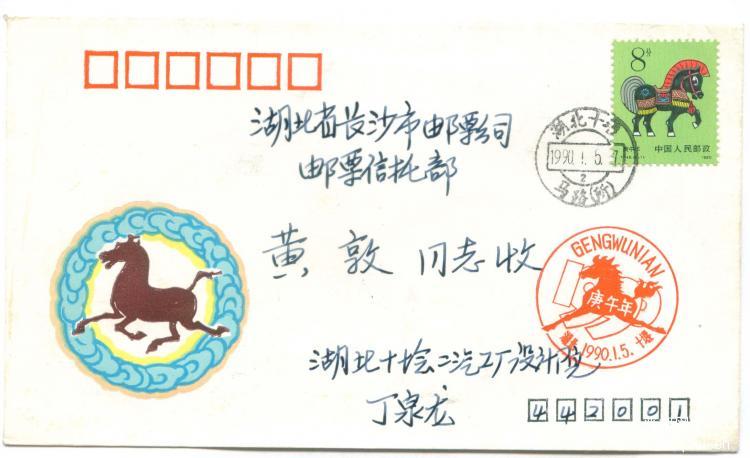 8分
庚午年
中国人民邮政
1990
湖北十堰
1990.1.5.7
2
湖北省长沙市邮票公司
邮票信托部
黄敦同志收
GENGWUNIAN
庚午年
湖北 1990.1.5. 十堰
湖北十堰二汽工厂设计院
丁泉龙
442001